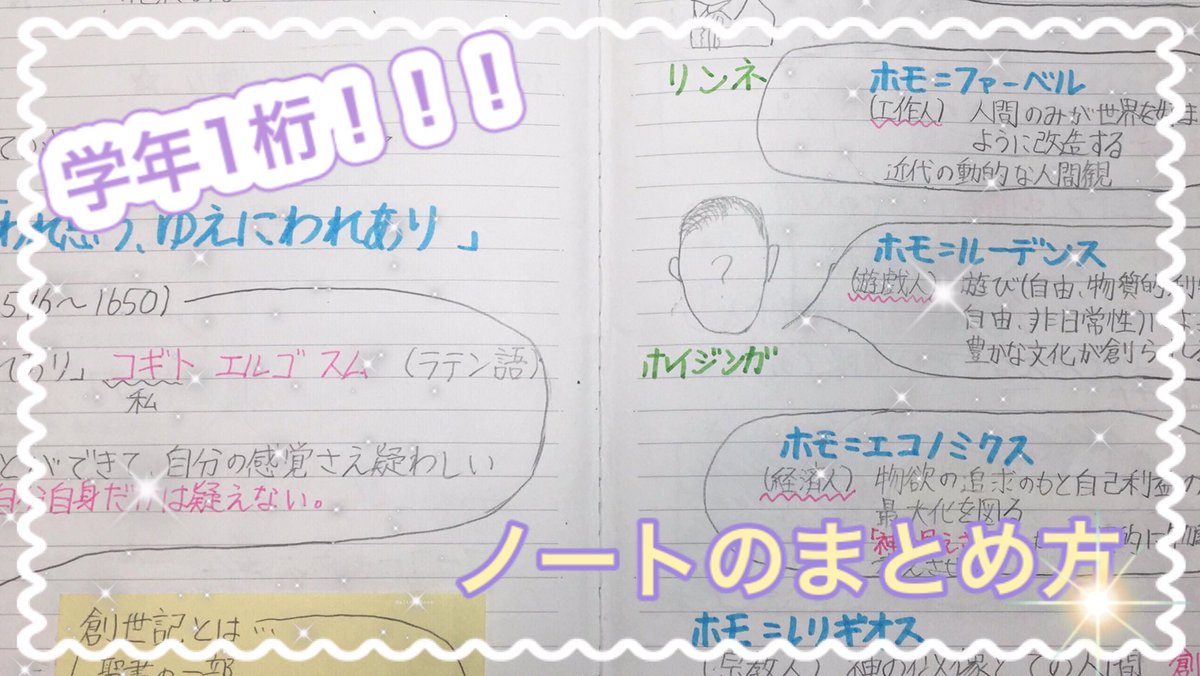 学年1桁！！！
われ思う、ゆえにわれあり」
～1650)
コギト エルゴ スム (ラテン語)
私
ができて、自分の感覚さえ疑わしい
自分自身だけは疑えない。
創世記とは…
聖書の一部
リンネ
ホモ＝ファーベル
(工作人) 人間のみが世界を
ように改造する
近代の動的な人間観
?
ホイジンガ
ホモ＝ルーデンス
(遊戯人) 遊び(自由、物質的
自由、非日常性)
豊かな文化が創ら
ホモ＝エコノミクス
(経済人) 物欲の追求のもと自己利益
最大化を図る
ノートのまとめ方
ホモ＝レリギオス
(宗教人) 神の似像としての人間 創